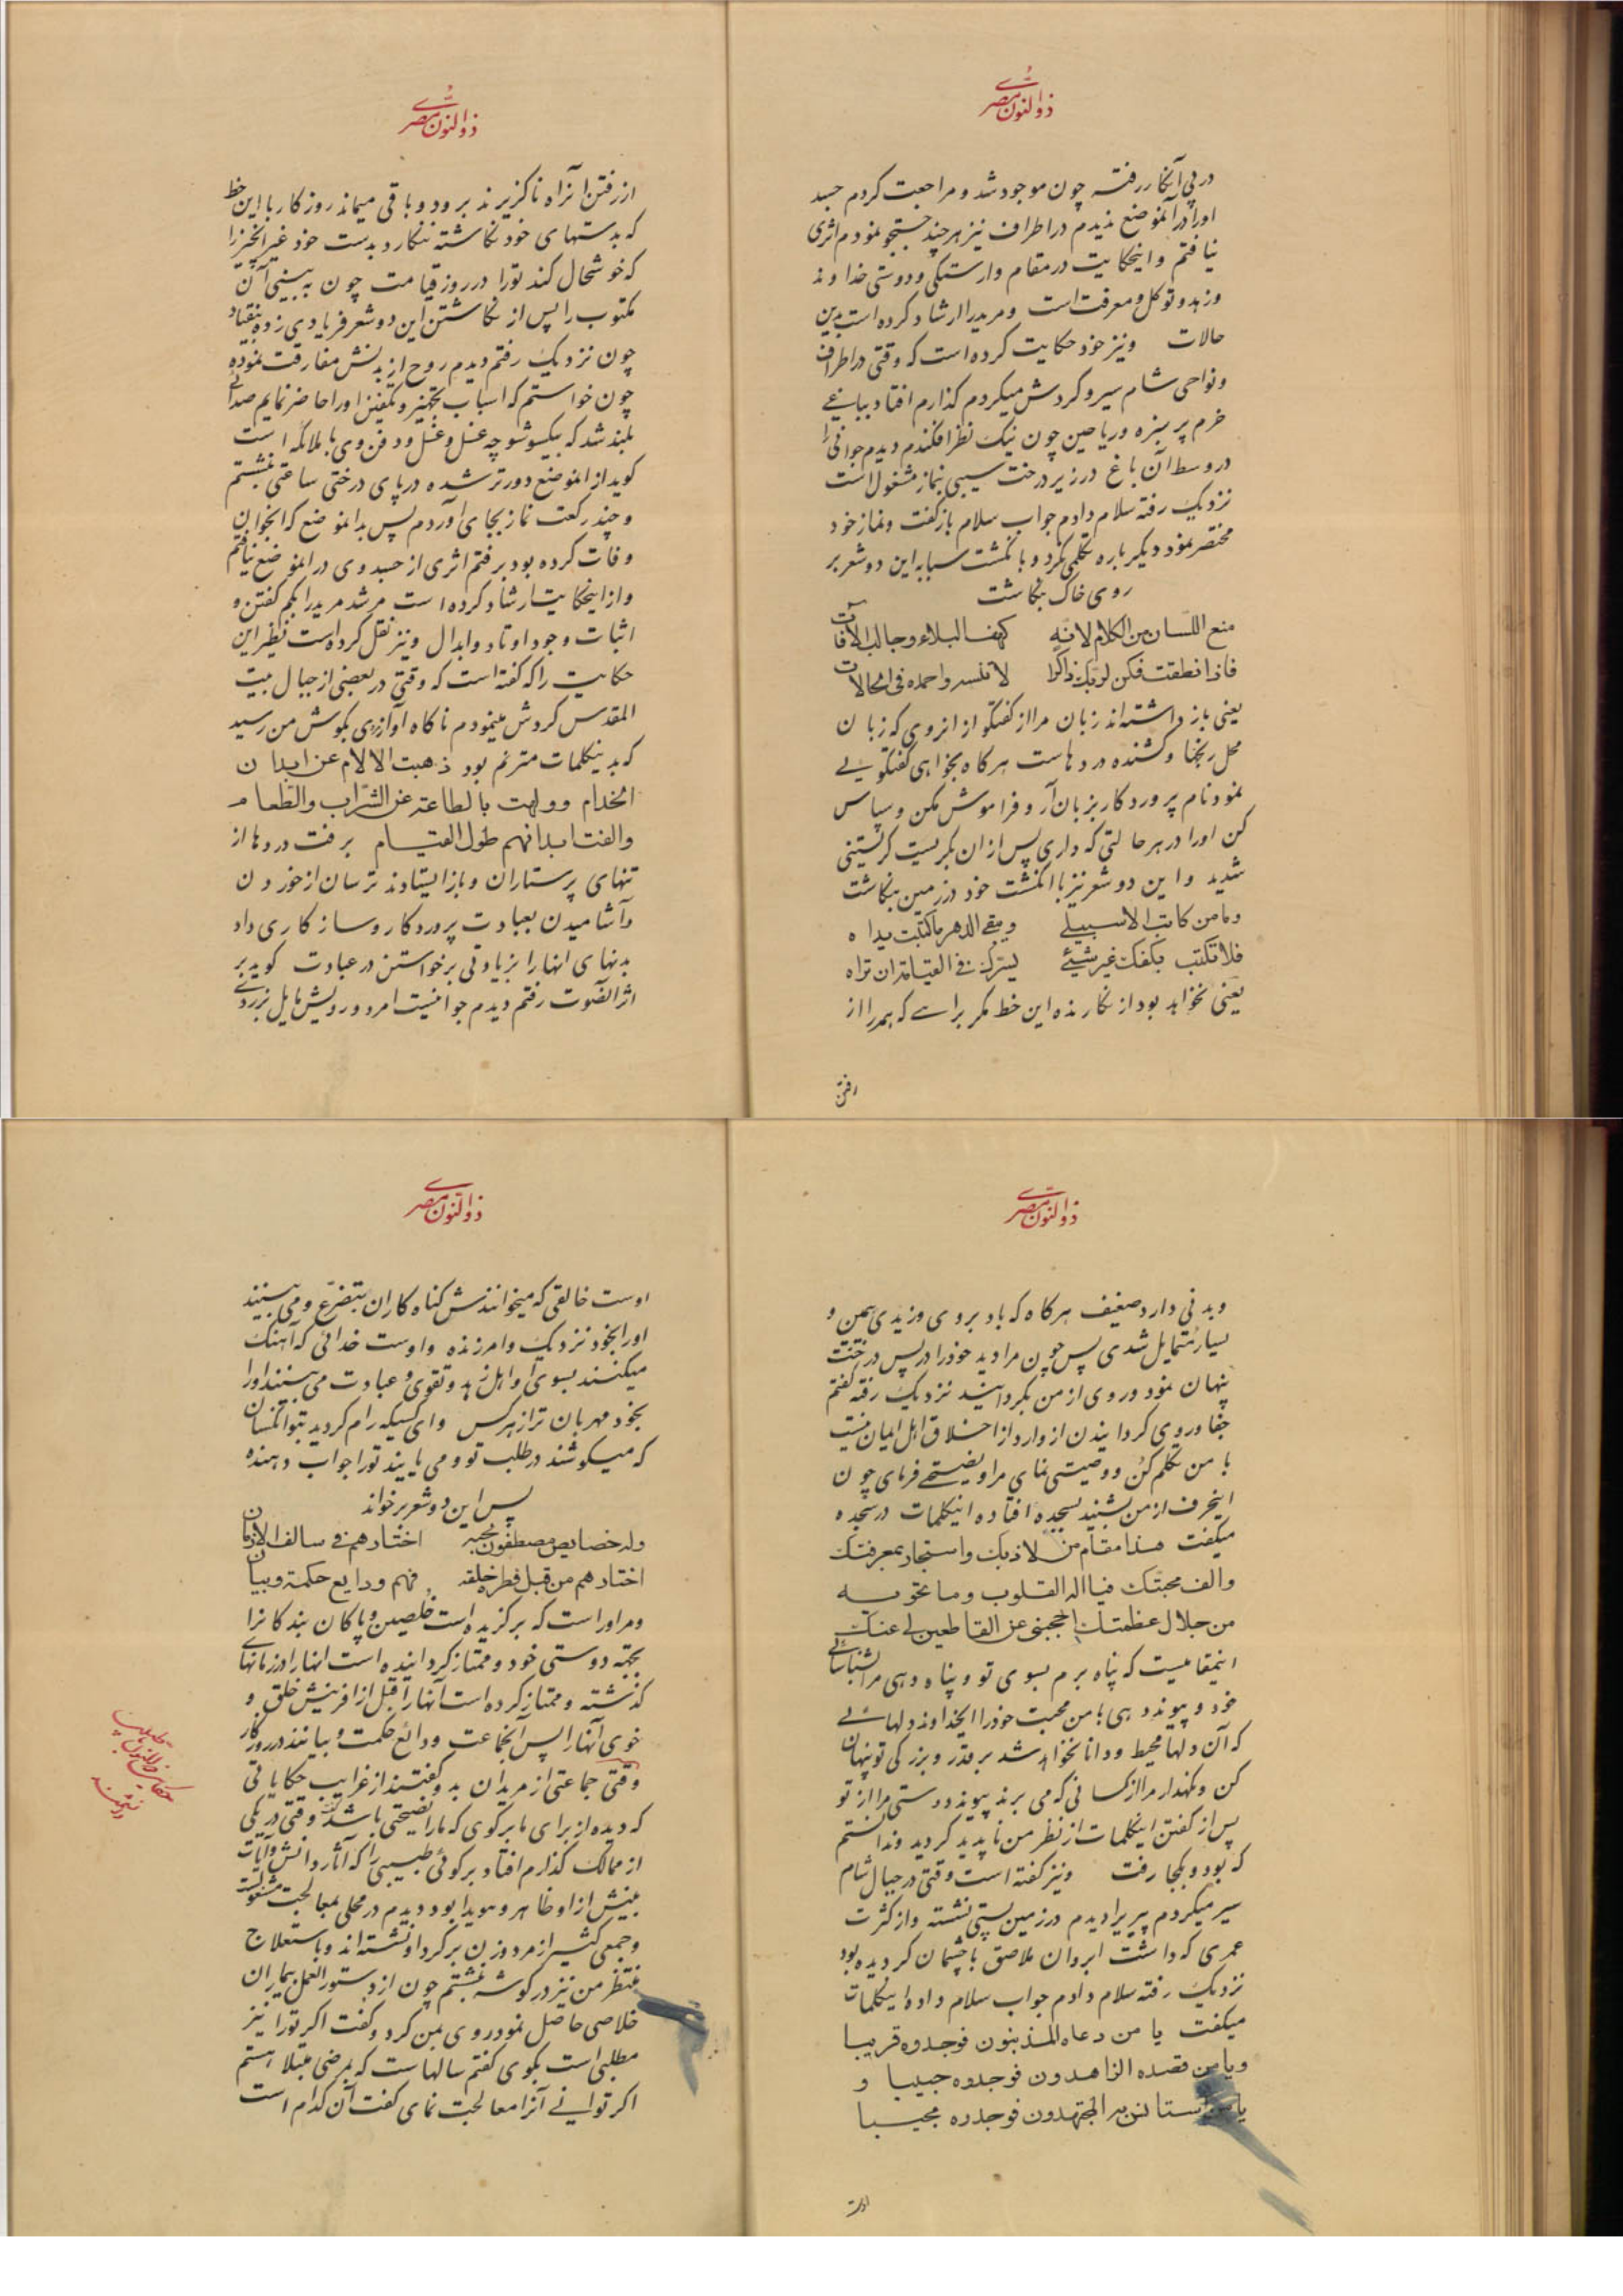 ذوالنون مصری
در پی آنکار رفته چون موجود شد و مراجعت کردم جسد
او را در آنموضع ندیدم در اطراف نیز هر چند جستجو نمودم اثری
نیافتم و اینحکایت در مقام وارستگی و دوستی خداوند
و زهد و توکل و معرفت است و مرید را ارشاد کرده است بدین
حالات ونیز خود حکایت کرده است که وقتی در اطراف
و نواحی شام سیر و کردش میکردم کذارم افتاد بباغی
خرم پر سبزه و ریاحین چون نیک نظر افکندم دیدم جوانی را
در وسط آن باغ در زیر درخت سیبی بنماز مشغول است
نزدیک رفته سلام دادم جواب سلام باز نکفت و نماز خود
مختصر نمود دیکر باره تکلمی نکرد و با نکشت سبابه این دو شعر بر
روی خاک بنکاشت
منع اللسان من الکلام لانه کهف البلاء و جالب الآفات
فاذا نطقت فکن لربک ذاکرا لا تنسه واحمده فی الحالات
یعنی باز داشته اند زبان مرا از کفتکو از انروی که زبان
محل رنجها و کشنده دردهاست هر کاه بخواهی کفتکوئی
نمود نام پروردکار بزبان آر و فراموش مکن و سپاس
کن او را در هر حالتی که داری پس از ان بکریست کریستنی
شدید و این دو شعر نیز با انکشت خود در زمین بنکاشت
وما من کاتب الا سیبلی ویبقی الدهر ما کتبت یداه
فلا تکتب بکفک غیر شیئ یسرک فی القیامة ان تراه
یعنی نخواهد بود از نکارنده این خط مکر براهی که همه را از
رفتن
ذوالنون مصری
از رفتن انراه ناکزیرند برود و باقی میماند روزکار با این خط
که بدستهای خود نکاشته ننکارد بدست خود غیر انچیز را
که خوشحال کند تو را در روز قیامت چون به بینی آن
مکتوب را پس از نکاشتن این دو شعر فریادی زده بیفتاد
چون نزدیک رفتم دیدم روح از بدنش مفارقت نموده
چون خواستم که اسباب تجهیز و تکفین او را حاضر نمایم صدائی
بلند شد که بیکسو شو چه غسل و دفن وی با ملائکه است
کوید از انموضع دورتر شده در پای درختی ساعتی نشستم
و چند رکعت نماز بجای آوردم پس بدانموضع که انجوان
وفات کرده بود برفتم اثری از جسد وی در انموضع نیافتم
و از اینحکایت ارشاد کرده است مرشد مرید را بکم کفتن و
اثبات وجود اوتاد و ابدال ونیز نقل کرده است نظیر این
حکایت را که کفته است که وقتی در بعضی از جبال بیت
المقدس کردش مینمودم ناکاه آوازی بکوش من رسید
که بدینکلمات مترنم بود ذهبت الالام عن ابدان
الخدام و ولهت بالطاعة عن الشراب والطعام
والفت ابدانهم طول القیام برفت دردها از
تنهای پرستاران و باز ایستادند ترسان از خوردن
و آشامیدن بعبادت پروردکار و سازکاری داد
بدنهای انها را بزیادتی برخواستن در عبادت کوید بر
اثر انصوت رفتم دیدم جوانیست امرد و رویش مایل بزردی
ذوالنون مصری
و بدنی دارد ضعیف هر کاه که باد بروی وزیدی بیمین و
یسار متمایل شدی پس چون مرا دید خود را در پس درخت
پنهان نمود و روی از من بکردانید نزدیک رفته کفتم
جفا و روی کردانیدن از وارد از اخلاق اهل ایمان نیست
با من تکلم کن و وصیتی نمای مرا و نصیحتی فرمای چون
اینحرف از من بشنید بسجده افتاده اینکلمات در سجده
میکفت هذا مقام من لاذ بک واستجار بمعرفتک
والف محبتک فیا اله القلوب وما تحویه
من جلال عظمتک احجبنی عن القاطعین لی عنک
اینمقامیست که پناه برم بسوی تو و پناه دهی مرا بشناسائی
خود و پیوند دهی با من محبت خود را ایخداوند دلهائی
که آن دلها محیط و دانا نخواهد شد بر قدر و بزرکی تو پنهان
کن و نکهدار مرا از کسانی که می برند پیوند دوستی مرا از تو
پس از کفتن اینکلمات از نظر من ناپدید کردید و ندانستم
که بود و بکجا رفت ونیز کفته است وقتی در جبال شام
سیر میکردم پیری را دیدم در زمین پستی نشسته و از کثرت
عمری که داشت ابروان ملاصق با چشمان کردیده بود
نزدیک رفته سلام دادم جواب سلام داد و اینکلمات
میکفت یا من دعاه المذنبون فوجدوه قریبا
ویا من قصده الزاهدون فوجدوه حبیبا و
یا من استانس به المجتهدون فوجدوه مجیبا
اوست
ذوالنون مصری
اوست خالقی که میخوانندش کناه کاران بتضرع و می بینند
او را بخود نزدیک و امرزنده و اوست خدائی که آهنک
میکنند بسوی او اهل زهد و تقوی و عبادت می بینند او را
بخود مهربان تر از هر کس و ای کسیکه رام کردید بتو انکسان
که میکوشند در طلب تو و می یابند تو را جواب دهنده
پس این دو شعر برخواند
وله خصایص مصطفون لحبه اختارهم فی سالف الازمان
اختارهم من قبل فطرة خلقه فهم ودایع حکمة وبیان
و مر او راست که برکزیده است مخلصین و پاکان بندکانرا
بجهة دوستی خود و ممتاز کردانیده است انها را در زمانهای
کذشته و ممتاز کرده است آنها را قبل از افرینش خلق و
خوی آنها را پس آنجماعت ودائع حکمت و بیانند در روزکار
وقتی جماعتی از مریدان بدو کفتند از غرایب حکایاتی
که دیده از برای ما برکوی که ما را نصیحتی باشد کفت وقتی در یکی
از ممالک کذارم افتاد بر کوئی طبیبی را که آثار دانش و آیات
بینش از او ظاهر و هویدا بود دیدم در محلی بمعالجت مشغولست
و جمعی کثیر از مرد و زن بر کرد او نشسته اند و باستعلاج
منتظر من نیز در کوشه نشستم چون از دستور العمل بیماران
خلاصی حاصل نمود روی بمن کرد و کفت اکر تو را نیز
مطلبی است بکوی کفتم سالهاست که بمرضی مبتلا هستم
اکر توانی آنرا معالجت نمای کفت آن کدام است
حکایت ذوالنون با طبیب